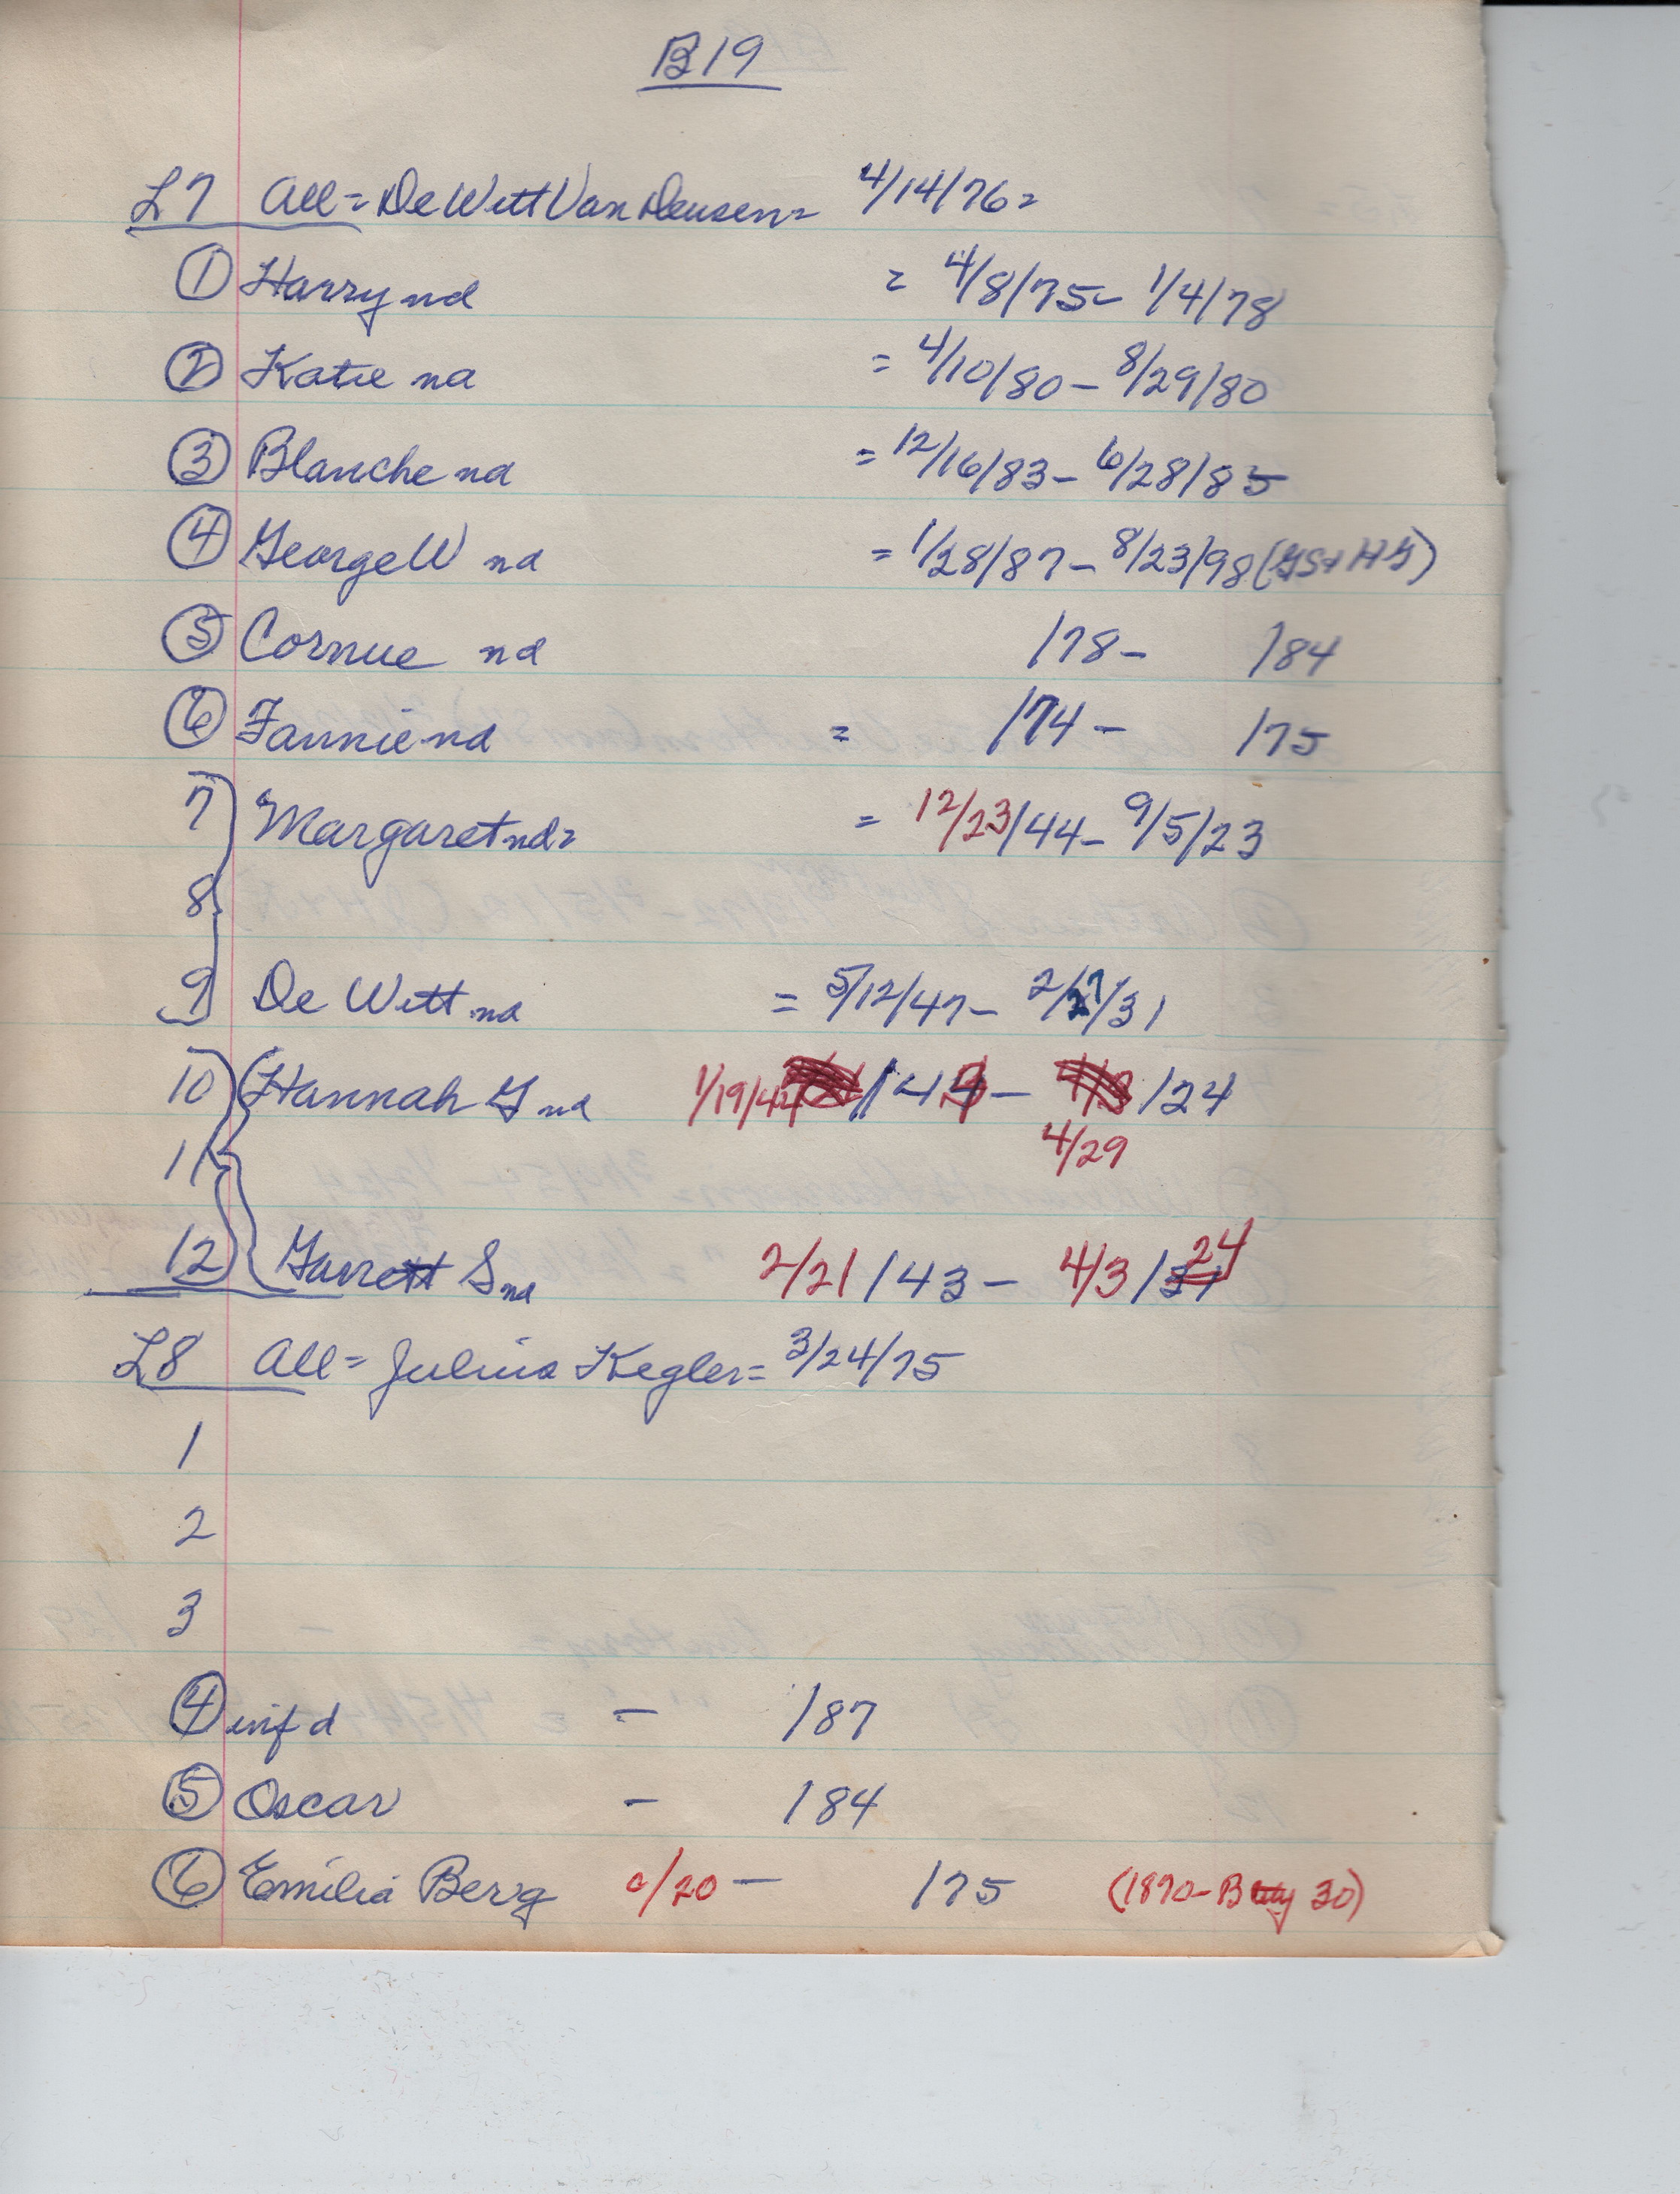 B19
L7 All = De Witt Van Deusen = 4/14/76 =
① Harry nd = 4/8/75 - 1/4/78
② Katie nd = 4/10/80 - 8/29/80
③ Blanche nd = 12/16/83 - 6/28/85
④ George W nd = 1/28/87 - 8/23/98 (GS+HG)
⑤ Cornue nd /78 - /84
⑥ Fannie nd = /74 - /75
7 Margaret nd = = 12/23/44 - 9/5/23
8
9 De Witt nd = 5/12/47 - 2/27/31
10 Hannah G nd 1/19/44 /44 - /24
4/29
11
12 Garrett S nd 2/21/43 - 4/3/24
L8 All = Julius Kegler = 3/24/75
1
2
3
④ inf d - /87
⑤ Oscar - /84
⑥ Emilia Berg c/20 - /75 (1870 - 30)